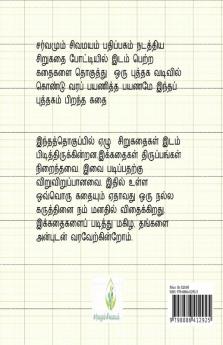 சர்வமும் சிவமயம் பதிப்பகம் நடத்திய
சிறுகதை போட்டியில் இடம் பெற்ற
கதைகளை தொகுத்து ஒரு புத்தக வடிவில்
கொண்டு வரப் பயணித்த பயணமே இந்தப்
புத்தகம் பிறந்த கதை
இந்தத்தொகுப்பில் ஏழு சிறுகதைகள் இடம்
பிடித்திருக்கின்றன.இக்கதைகள் திருப்பங்கள்
நிறைந்தவை. இவை படிப்பதற்கு
விறுவிறுப்பானவை. இதில் உள்ள
ஒவ்வொரு கதையும் ஏதாவது ஒரு நல்ல
கருத்தினை நம் மனதில் விதைக்கிறது.
இக்கதைகளைப் படித்து மகிழ, தங்களை
அன்புடன் வரவேற்கின்றோம்.
9 789886 412925